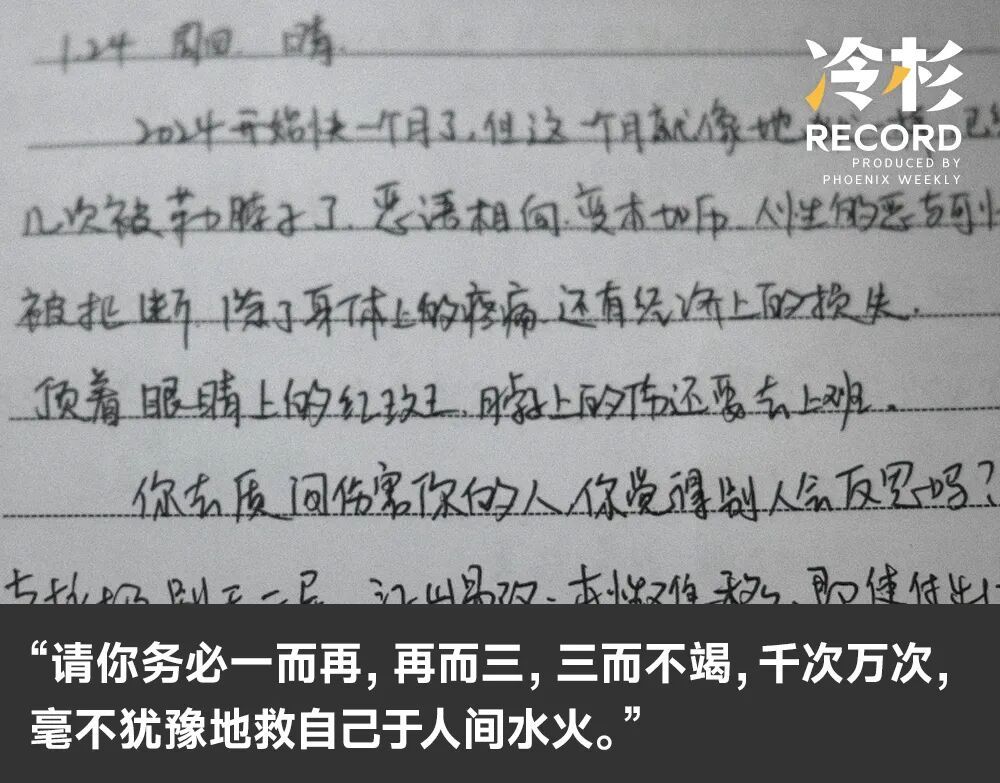 1.24 周四 晴.
冷杉
RECORD
PRODUCED BY
PHOENIX WEEKLY
2024开始快一个月了,但这一个月就像地 已
几次被勒脖子了.恶语相向.变本加厉.人性的恶与可
被扯断.除了身体上的疼痛.还有经济上的损失.
顶着眼睛上的红玫王.脖子上的伤还要去上班.
你去质问伤害你的人,你觉得别人会反思吗?
江山易改.本性难移.即使付出
“请你务必一而再,再而三,三而不竭,千次万次,
毫不犹豫地救自己于人间水火。”